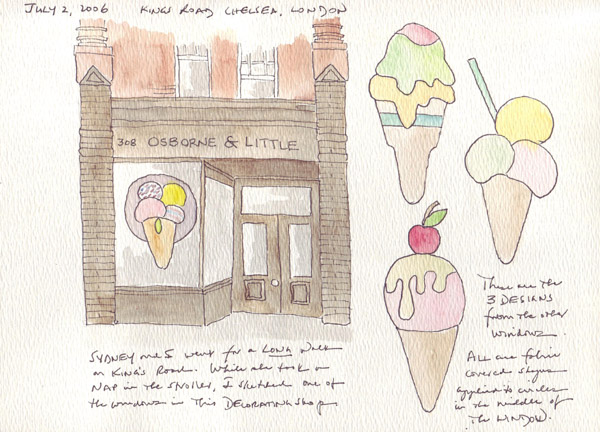 JULY 2, 2006 KINGS ROAD CHELSEA, LONDON
308 OSBORNE & LITTLE
SYDNEY and I went for a LONG walk
on KING'S ROAD. While she took a
NAP in the stroller, I sketched one of
the windows in this DECORATING shop
These are the
3 DESIGNS
from the other
windows.
ALL are fabric
covered shapes
applied to circles
in the middle of
The WINDOW.